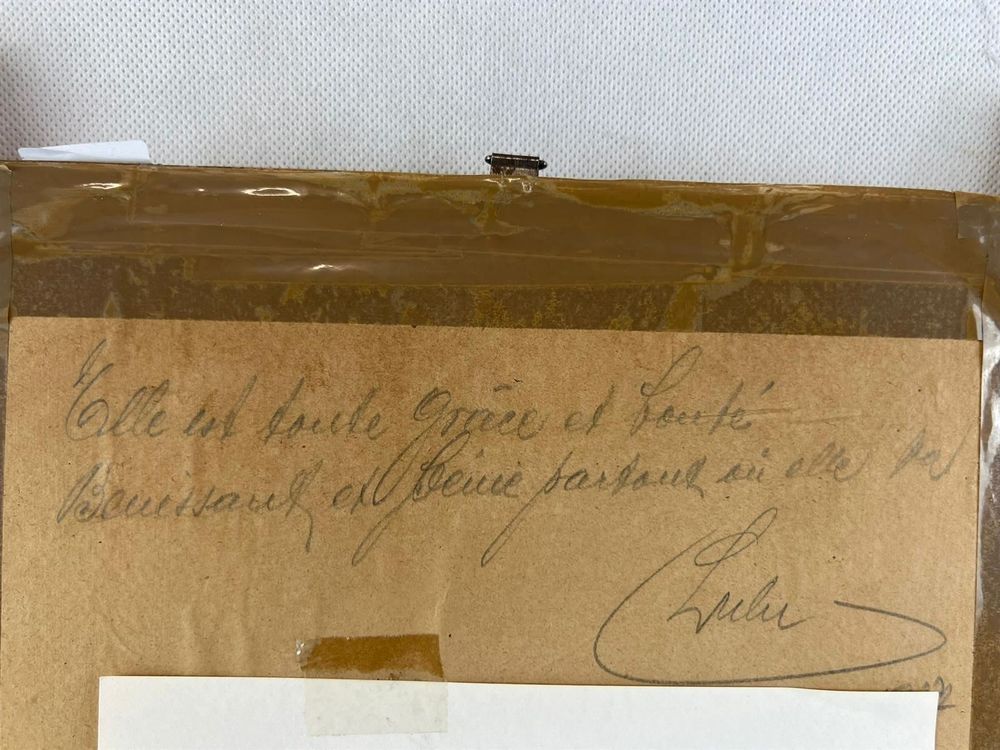 Elle est toute Grâce et bonté
Benissant et Benie partout où elle va
Lulu